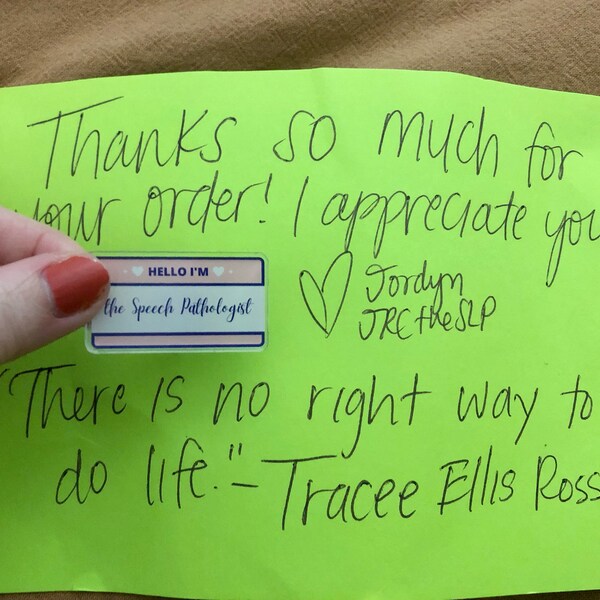 Thanks so much for
your order! I appreciate you
HELLO I'M
the Speech Pathologist
♡ Jordyn
JRCtheSLP
"There is no right way to
do life." - Tracee Ellis Ross